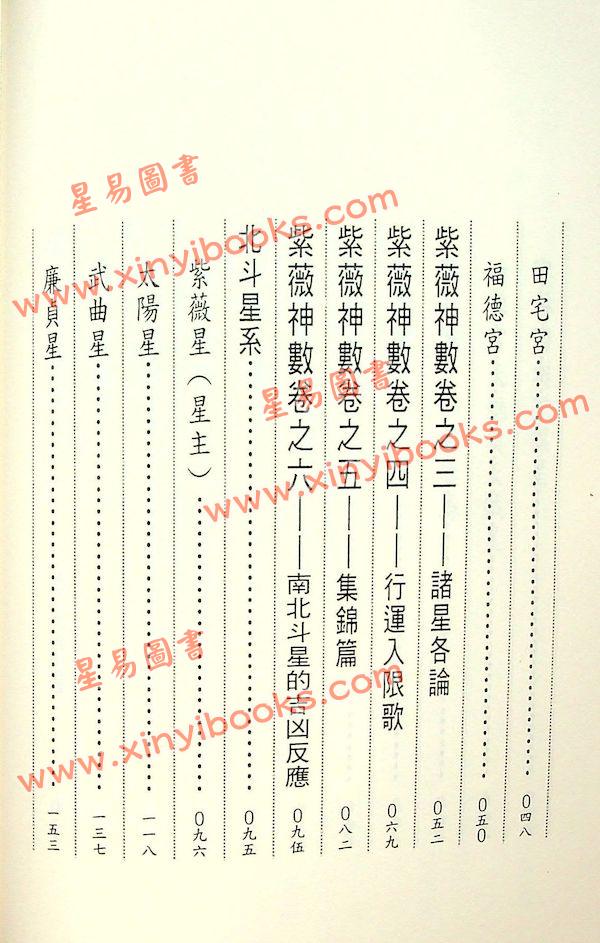 田宅宮⋯⋯⋯⋯⋯⋯⋯⋯⋯⋯〇四八
福德宮⋯⋯⋯⋯⋯⋯⋯⋯⋯⋯〇五〇
紫薇神數卷之三——諸星各論 〇五二
紫薇神數卷之四——行運入限歌 〇六九
紫薇神數卷之五——集錦篇 〇八二
紫薇神數卷之六——南北斗星的吉凶反應 〇九伍
北斗星系⋯⋯⋯⋯⋯⋯⋯⋯⋯⋯〇九五
紫薇星(星主)⋯⋯⋯⋯⋯⋯⋯⋯〇九六
太陽星⋯⋯⋯⋯⋯⋯⋯⋯⋯⋯一一八
武曲星⋯⋯⋯⋯⋯⋯⋯⋯⋯⋯一三七
廉貞星⋯⋯⋯⋯⋯⋯⋯⋯⋯⋯一五三
星易圖書
www.xinyibooks.com
星易圖書
www.xinyibooks.com
星易圖書
www.xinyibooks.com